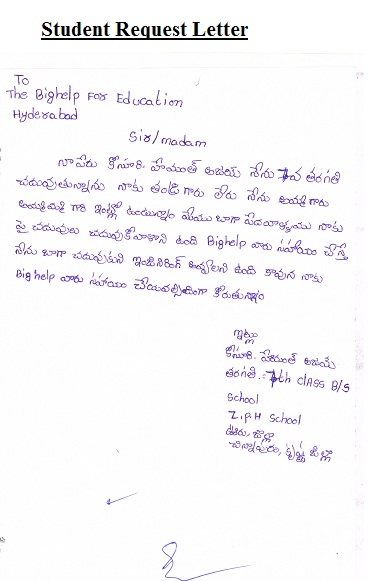 Student Request Letter
To
The Bighelp For Education
Hyderabad
Sir/madam
నా పేరు కోసూరి. హేమంత్ అజయ్ నేను 7వ తరగతి
చదువుతున్నాను నాకు తండ్రి గారు లేరు నేను అమ్మ గారు
అమ్మమ్మ గారి ఇంట్లో ఉంటున్నాం మేము బాగా పేదవాళ్ళము నాకు
పై చదువులు చదువుకోవాలని ఉంది Bighelp వారు సహాయం చేస్తే
నేను బాగా చదువుకుని ఇంజనీరింగ్ అవ్వాలని ఉంది కావున నాకు
Bighelp వారు సహాయం చేయవలసిందిగా కోరుతున్నాం
ఇట్లు
కోసూరి. హేమంత్ అజయ్
తరగతి :- 7th ClASS B/S
School
Z.P.H School
ఊరు, జిల్లా
చిన్నాపురం, కృష్ణా జిల్లా